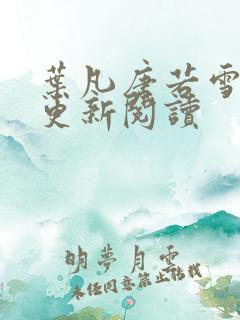 葉凡唐若雪
更新閱讀
明夢月雲
未经同意禁止转载